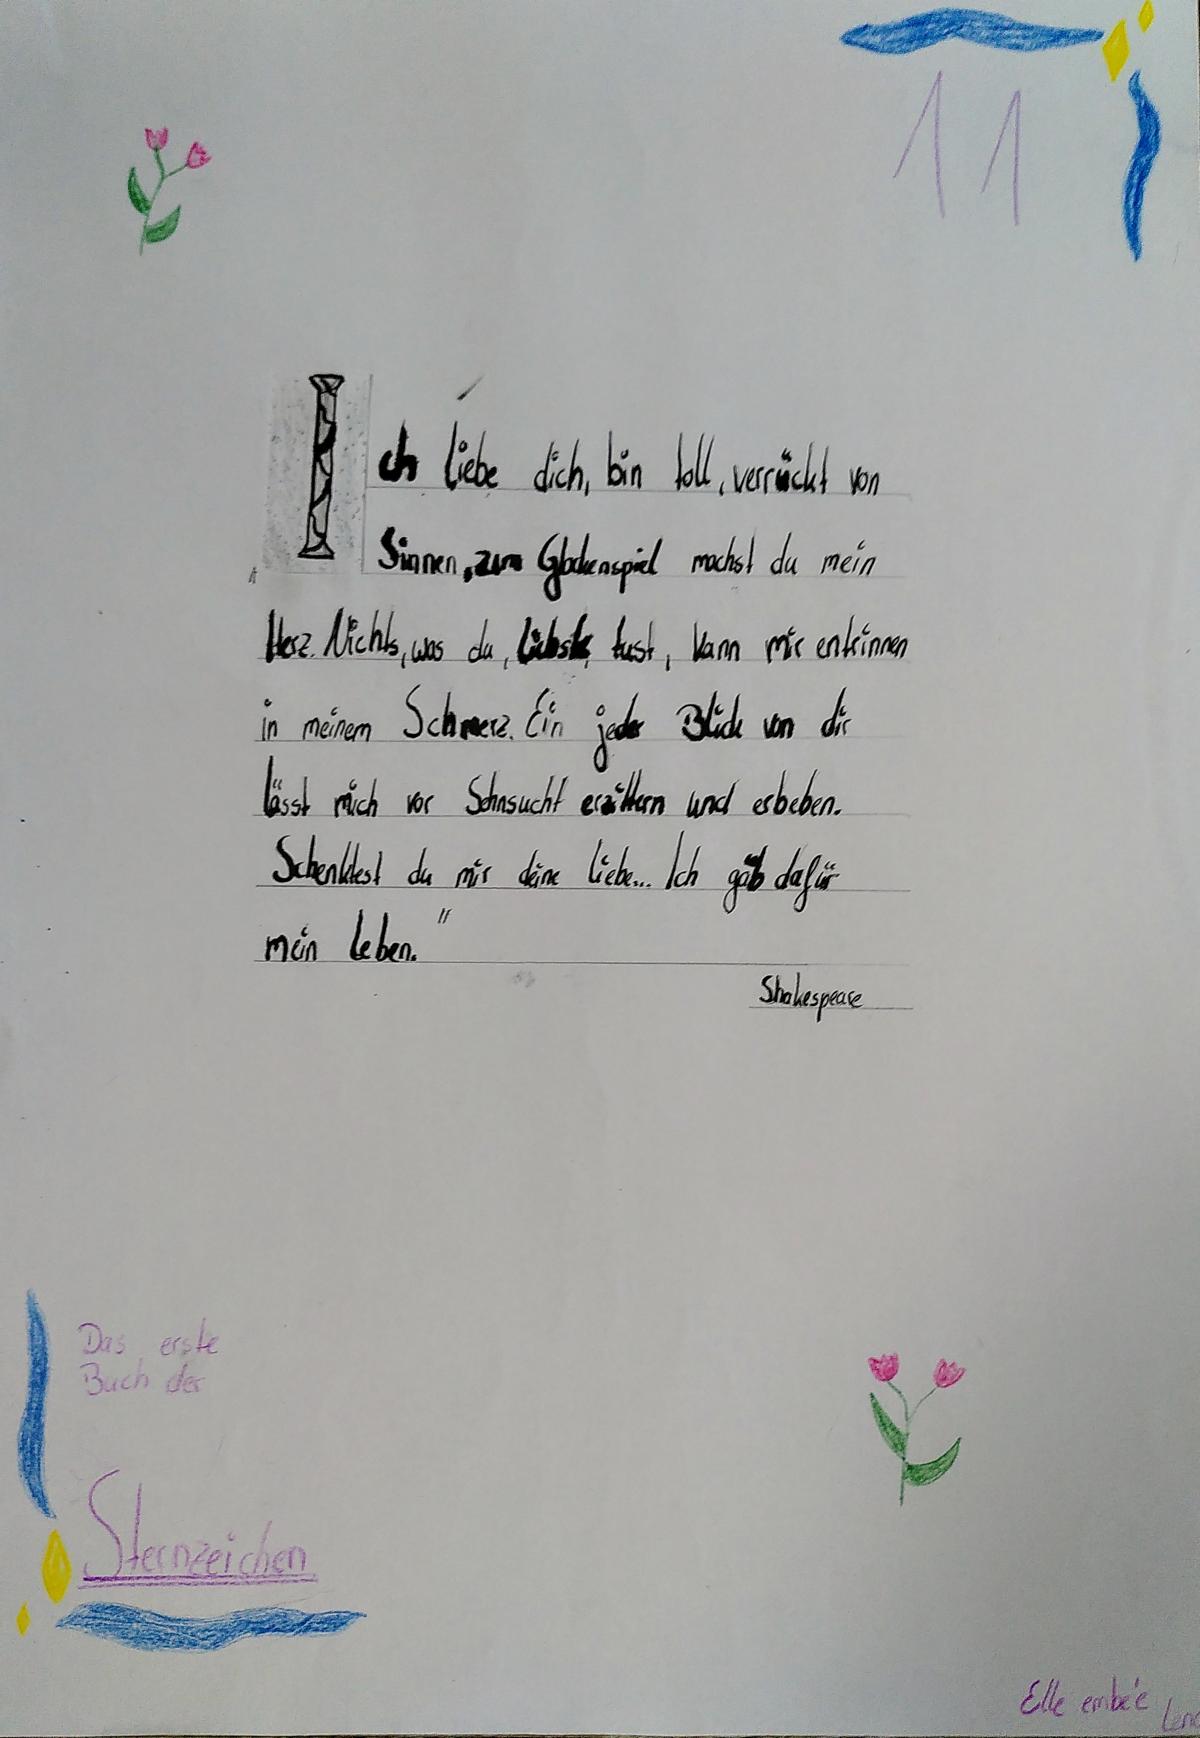 11
„Ich liebe dich, bin toll, verrückt von
Sinnen, zum Glockenspiel machst du mein
Herz. Nichts, was du, liebste, tust, kann mir entrinnen
in meinem Schmerz. Ein jeder Blick von dir
lässt mich vor Sehnsucht erzittern und erbeben.
Schenktest du mir deine liebe... Ich gäb dafür
mein leben."
Shakespeare
Das erste
Buch der
Sternzeichen
Elle